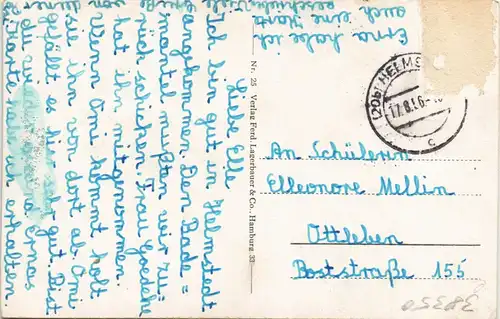 Erna habe ich
auch eine Karte
geschrieben
Liebe Elle
Ich bin gut in Helmstedt
angekommen. Den Bade=
mantel mußten wir zu=
rück schicken. Frau Goedeke
hat ihn mitgenommen.
Wenn Omi kommt holt
sie ihn von dort ab. Omi
gefällt es hier sehr gut. Best
du
Ernas
Karte habe ich erhalten.
Nr. 25 Verlag Ferd. Lagerbauer & Co., Hamburg 33
(20b) HELMS
17.8.56
c
An Schülerin
Elleonore Mellin
Ottleben
Poststraße 155
38350